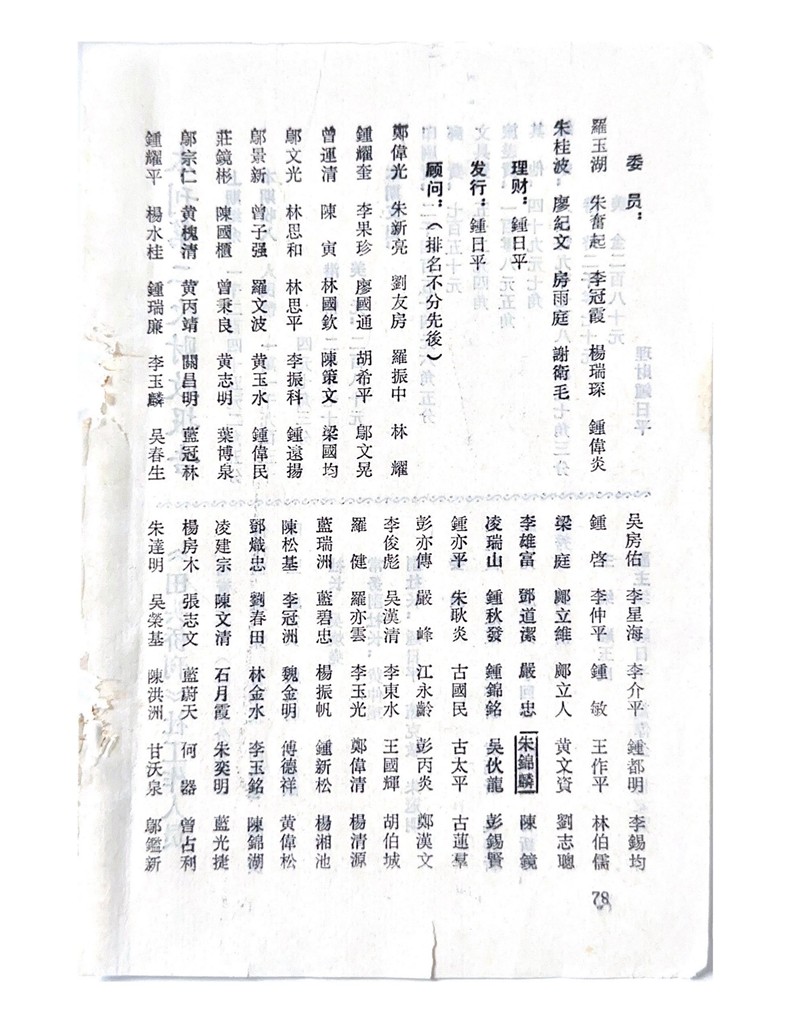 委员：
羅玉湖 朱奮起 李冠霞 楊瑞琛 鍾偉炎
朱桂波 廖紀文 房雨庭 謝衛毛
理财：鍾日平
发行：鍾日平
顾问：（排名不分先後）
鄭偉光 朱新亮 劉友房 羅振中 林 耀
鍾耀奎 李果珍 廖國通 胡希平 鄔文晃
曾運清 陳 寅 林國欽 陳策文 梁國均
鄔文光 林思和 林思平 李振科 鍾遠揚
鄔景新 曾子强 羅文波 黄玉水 鍾偉民
莊鏡彬 陳國櫃 曾秉良 黄志明 葉博泉
鄔宗仁 黄槐清 黄丙靖 關昌明 藍冠林
鍾耀平 楊水桂 鍾瑞廉 李玉麟 吴春生
吴房佑 李星海 李介平 鍾都明 李錫均
鍾 啓 李仲平 鍾 敏 王作平 林伯儒
梁 庭 鄺立維 鄺立人 黄文資 劉志聰
李雄富 鄧道潔 嚴 忠 朱錦麟 陳 鏡
凌瑞山 鍾秋發 鍾錦銘 吴伙龍 彭錫賢
鍾亦平 朱耿炎 古國民 古太平 古蓮羣
彭亦傳 嚴 峰 江永齡 彭丙炎 鄭漢文
李俊彪 吴漢清 李東水 王國輝 胡伯城
羅 健 羅亦雲 李玉光 鄭偉清 楊清源
藍瑞洲 藍碧忠 楊振帆 鍾新松 楊湘池
陳松基 李冠洲 魏金明 傅德祥 黄偉松
鄧熾忠 劉春田 林金水 李玉銘 陳錦湖
凌建宗 陳文清 石月霞 朱奕明 藍光捷
楊房木 張志文 藍蔚天 何 器 曾占利
朱達明 吴榮基 陳洪洲 甘沃泉 鄔鑑新
78